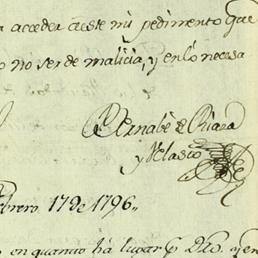 a acceder a este mi pedimento que
o no ser de malicia, y en lo necesa
Bernabé de Piaza
y Velasco
ebrero 17 de 1796.,
en quanto há lugar p. Dro. y en